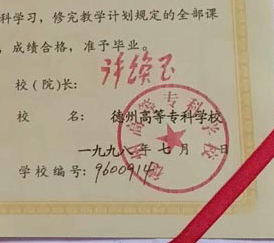 科学习，修完教学计划规定的全部课
，成绩合格，准予毕业。
校（院）长：许焕玉
校 名：德州高等专科学校
一九九八年七月 日
学校编号：9600914
德州高等专科学校